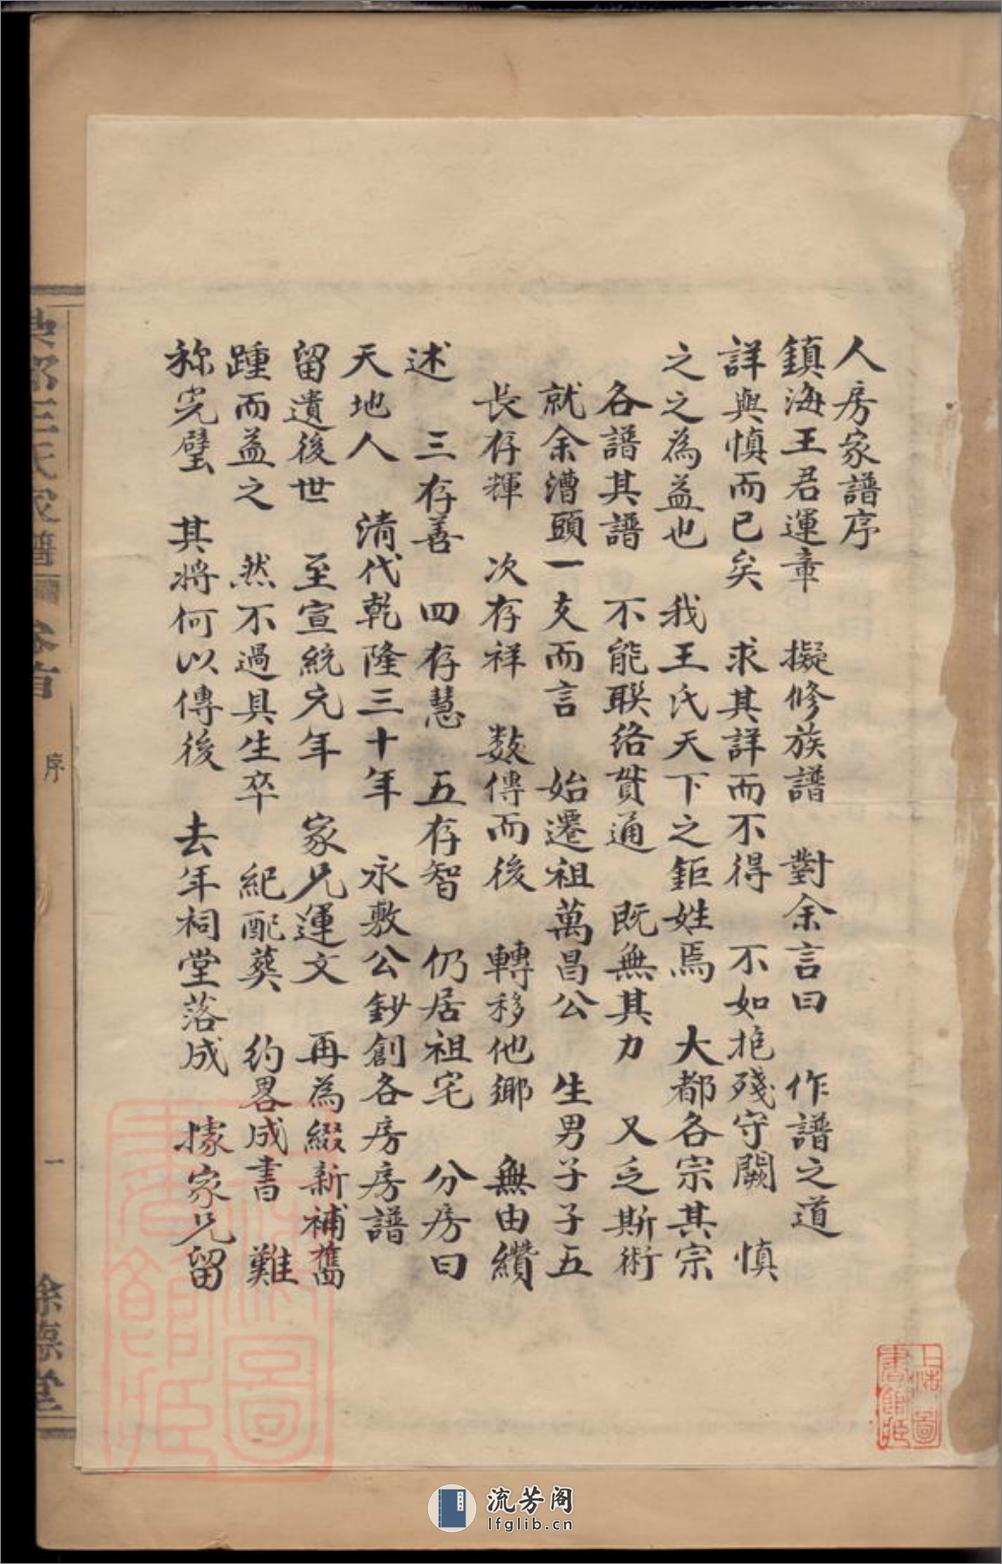 人房家譜序
鎮海王君運章 擬修族譜 對余言曰 作譜之道
詳與慎而已矣 求其詳而不得 不如抱殘守闕 慎
之之為益也 我王氏天下之鉅姓焉 大都各宗其宗
各譜其譜 不能聯絡貫通 既無其力 又乏斯術
就余漕頭一支而言 始遷祖萬昌公 生男子子五
長存輝 次存祥 数傳而後 轉移他鄉 無由纘
述 三存善 四存慧 五存智 仍居祖宅 分房曰
天地人 清代乾隆三十年 永敷公鈔創各房房譜
留遺後世 至宣統元年 家兄運文 再為綴新補舊
踵而益之 然不過具生卒 紀配葬 約畧成書 難
称完璧 其將何以傳後 去年祠堂落成 據家兄留
王氏家譜 卷首
序
一
餘慶堂
上海圖書館藏
流芳阁
lfglib.cn